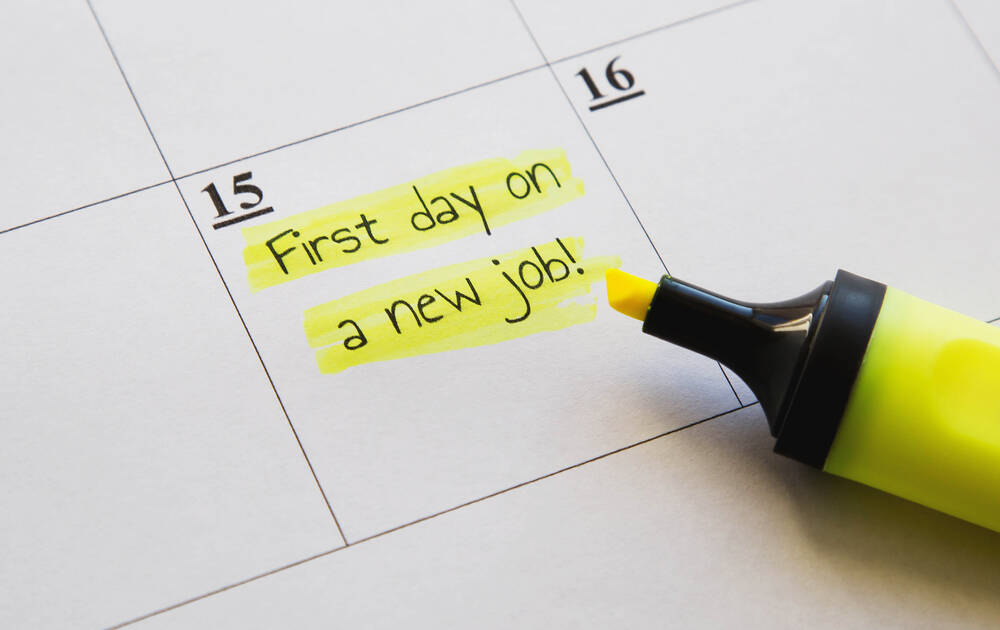 15
16
First day on
a new job!